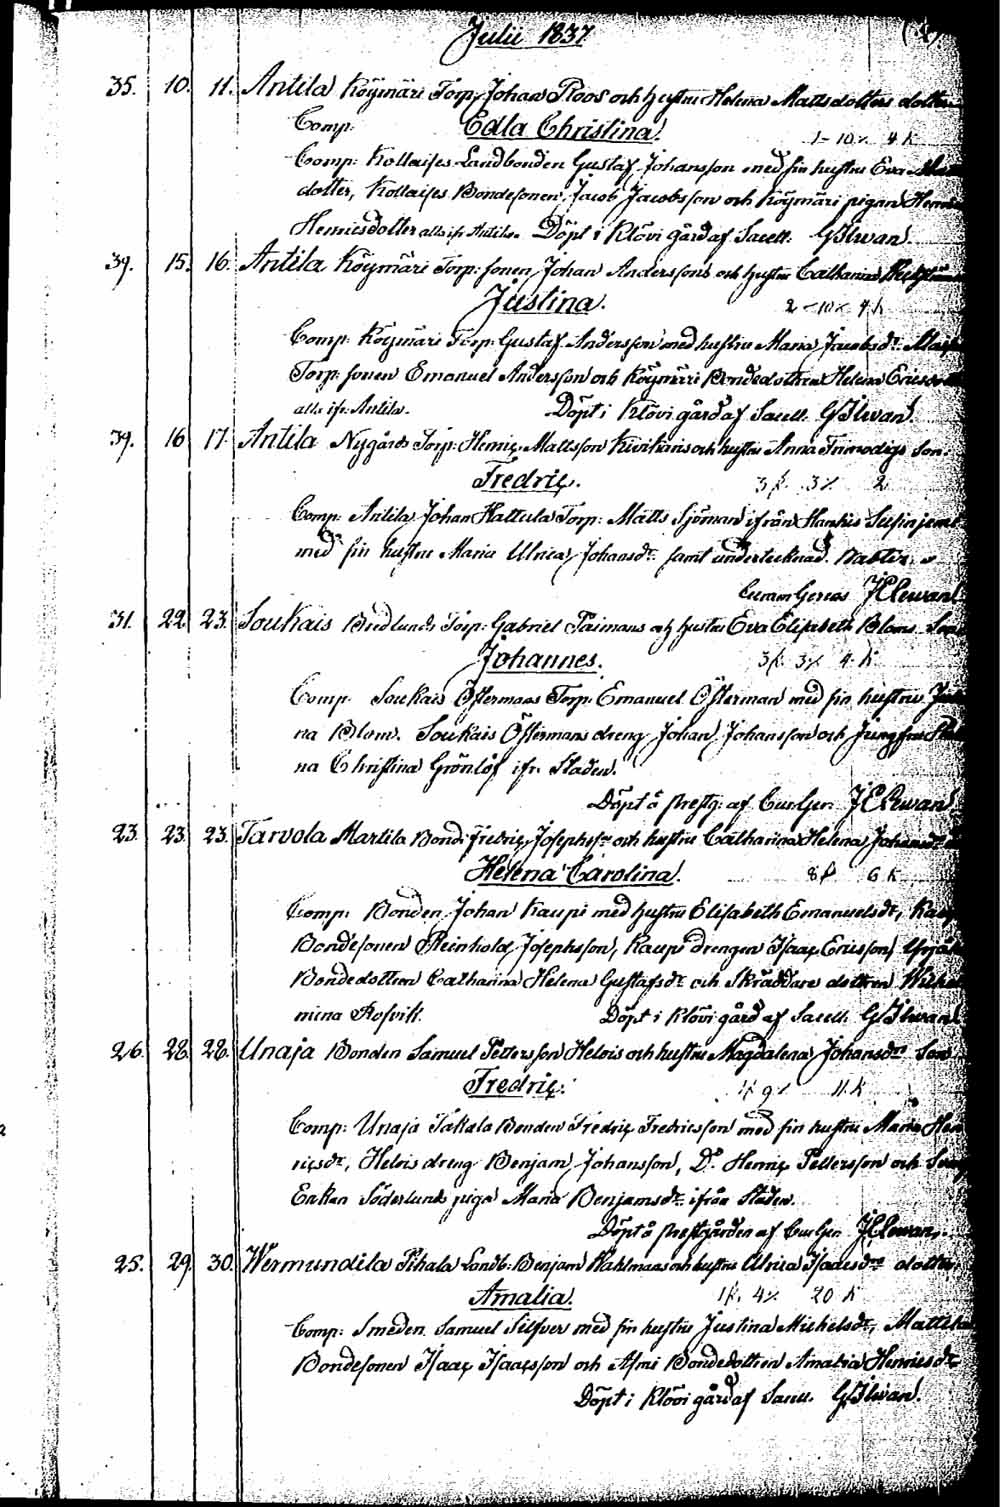 Julii 1837
35. 10. 11. Antila Köymäri Torp: Johan Roos och hustru Helena Mattsdotters dotter
Comp: Edla Christina. 1-10% 4 k
Comp: Kollaises Landbonden Gustaf Johansson med sin hustru Eva
dotter, Kollaises Bondesonen Jacob Jacobsson och Köymäri pigan
Henricsdotter alla ifr. Antila. Döpt i Klövi gård af Sacell. G Ilwan.
39. 15. 16. Antila Köymäri Torp: sonen Johan Anderssons och hustru Catharina
Justina. 2-10% 4 k
Comp: Köymäri Torp: Gustaf Andersson med hustru Maria Jacobsdr
Torp: sonen Emanuel Andersson och Köymäri Bondedottren Helena
alla ifr. Antila. Döpt i Klövi gård af Sacell. G Ilwan.
39. 16 17. Antila Nygårds Torp: Henric Mattsson Kivikaris och hustru Anna Frimodigs son.
Fredric. 3 k. 3% 2
Comp: Antila Johan Hattula Torp: Matts Sjöman ifrån
med sin hustru Maria Ulrica Johansdr samt undertecknad.
Curam Gerens J E Lewan.
31. 22. 23. Soukais Bredlunds Torp: Gabriel Taimans och hustru Eva Elisabeth Bloms Son
Johannes. 3 k. 3% 4 k
Comp. Soukais Östermans Torp: Emanuel Österman med sin hustru
na Blom. Soukais Östermans dreng Johan Johansson och Jungfru
na Christina Grönlöf ifr. Staden.
Döpt å prestg: af Cur. Ger. J E Lewan.
23. 23. 23. Tarvola Martila Bond: Fredric Josephss. och hustru Catharina Helena Johansdr
Helena Carolina. 8 k 6 k
Comp: Bonden Johan Kaupi med hustru Elisabeth Emanuelsdr,
Bondesonen Reinhold Josephsson, Kaupi drengen Isaac Ericsson,
Bondedottren Catharina Helena Gustafsdr och Skräddare dottren Wilhel
mina Rosvik. Döpt i Klövi gård af Sacell. G Ilwan.
26. 28. 28. Unaja Bonden Samuel Pettersson Helois och hustru Magdalena Johansdrs Son
Fredric. 4 9% 11. k
Comp: Unaja Takala Bonden Fredric Fredricsson med sin hustru Maria Hen
ricsdr, Helois dreng Benjam Johansson, Do Henric Pettersson och
Enkan Söderlunds piga Maria Benjamsdr ifrån Staden.
Döpt å prestgården af Cur. Ger. J E Lewan.
25. 29. 30. Wermundila Pihala Landb: Benjam Wahlmans och hustru Ulrica Isacsdrs dotter
Amalia. 1 k. 4% 20 k
Comp: Smeden Samuel Silfver med sin hustru Justina Michelsdr,
Bondesonen Isaac Isaacsson och Asmi Bondedottren Amalia Henricsdr
Döpt i Klövi gård af Sacell. G Ilwan.